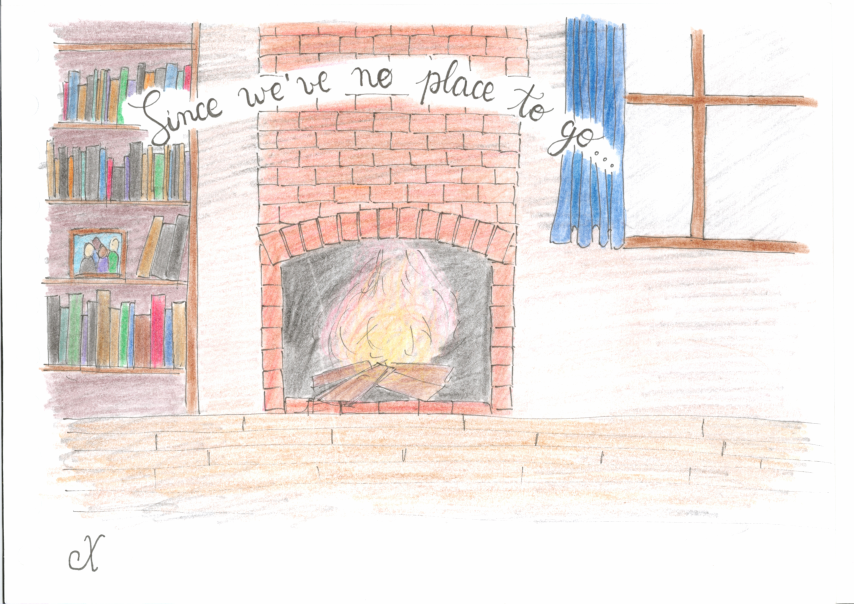 Since we've no place to go...
X